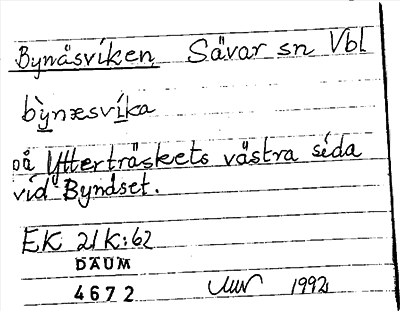 Bynäsviken Sävar sn Vbl
bỳnæsvíka
på Ytterträskets västra sida
vid Bynäset.
EK 21K:62
DAUM
4672 1992